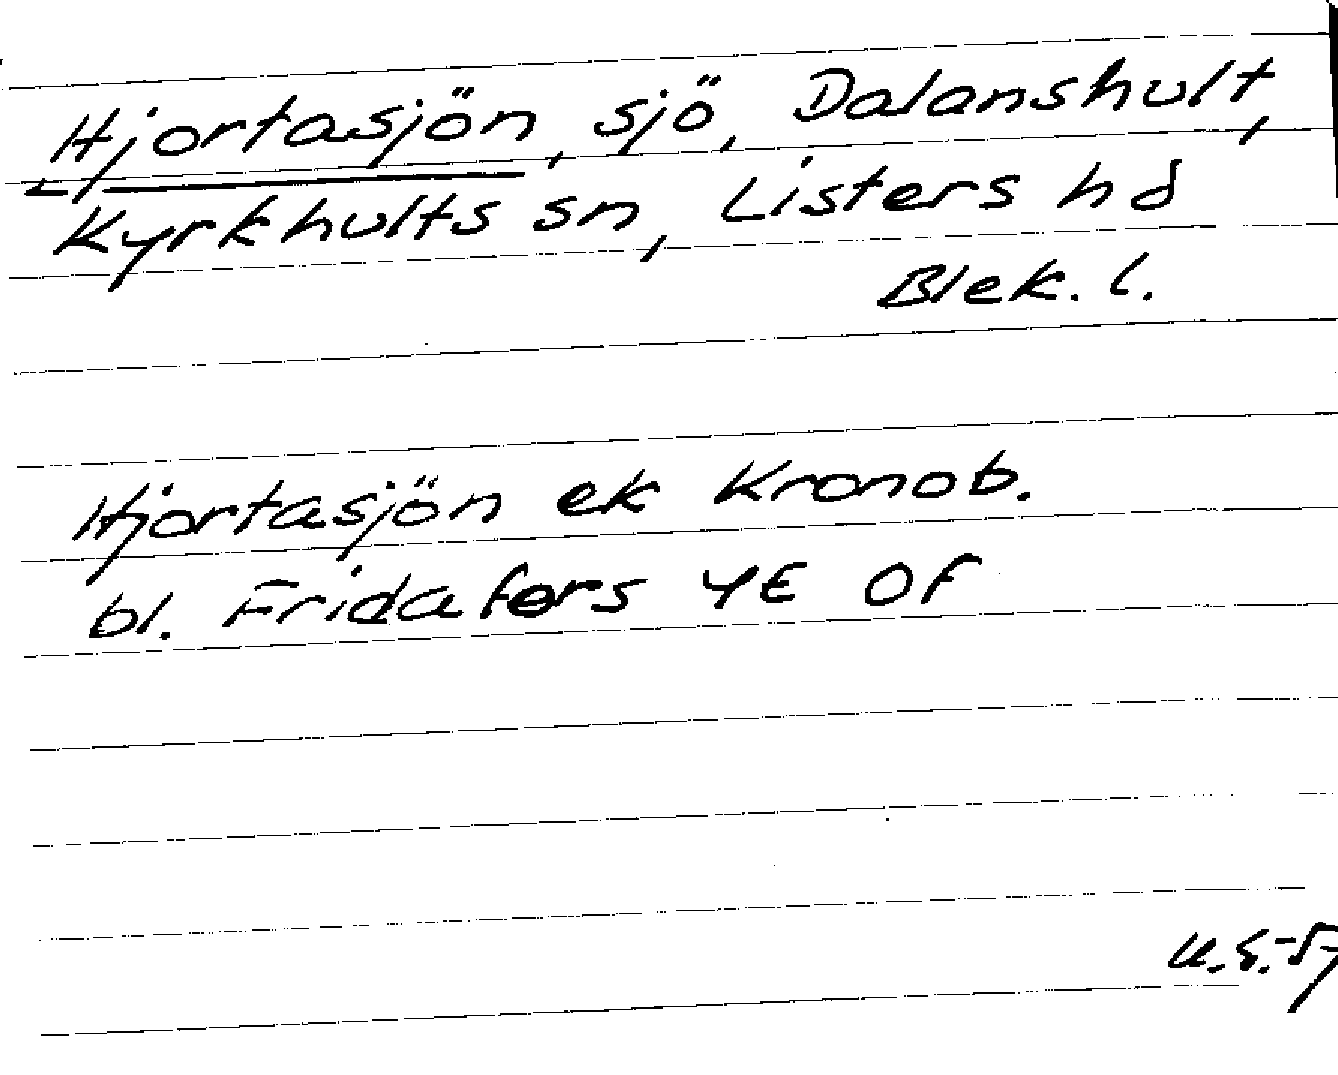 Hjortasjön, sjö, Dalanshult,
Kyrkhults sn, Listers hd
Blek. l.
Hjortasjön ek Kronob.
bl. Fridafors 4E OF
U.S.-57